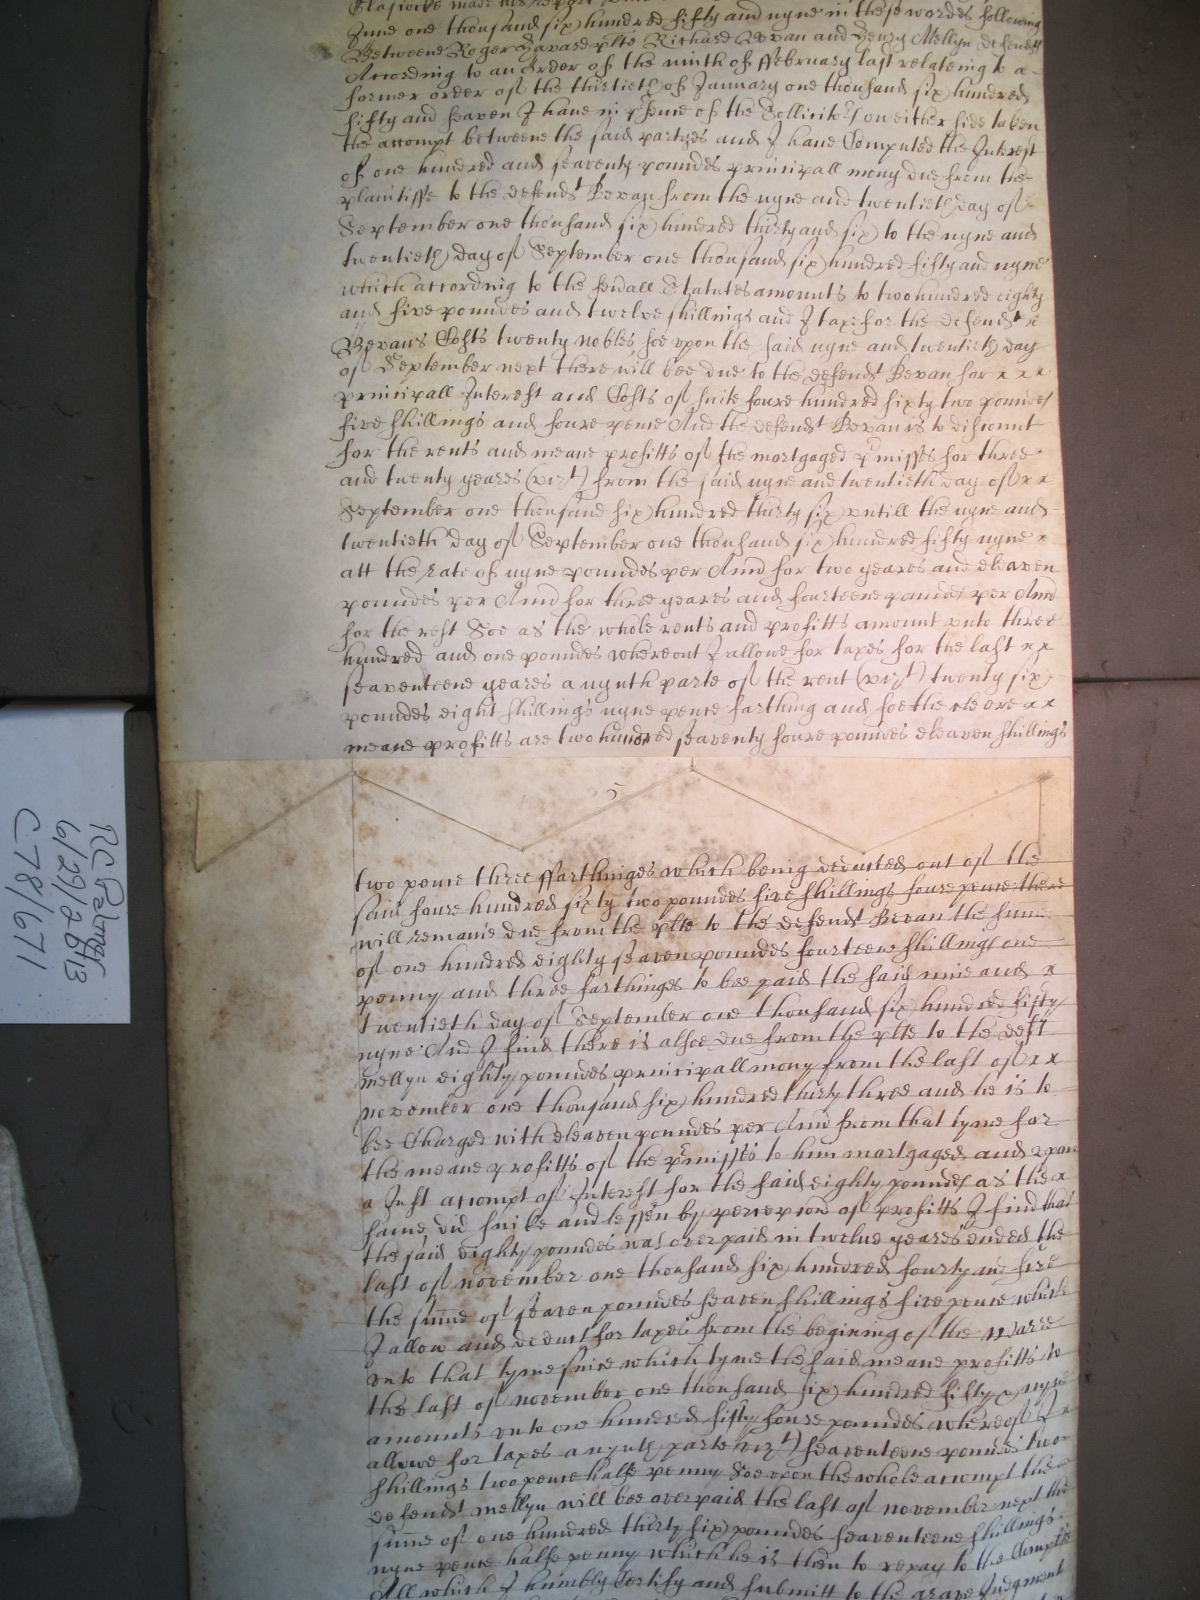 Glascocke made his report
June one thousand six hundred fifty and nyne in these wordes following
Betweene Roger Havard plte Richard Bevan and Henry Mellyn defendts
According to an Order of the ninth of ffebruary last relateing to a
former order of the thirtieth of January one thousand six hundred
fifty and seaven I have in prsence of the Sollicitrs on either side taken
the accompt betweene the said partyes and I have Computed the Interest
of one hundred and seaventy poundes principall mony due from the
plaintiffe to the defendt Bevan from the nyne and twentieth day of
September one thousand six hundred thirty and six to the nyne and
twentieth day of September one thousand six hundred fifty and nyne
which according to the severall Statutes amounts to two hundred eighty
and five poundes and twelve shillings and I taxe for the defendt x
Bevans Costs twenty nobles soe upon the said nyne and twentieth day
of September next there will bee due to the defendt Bevan for x x x
principall Interest and Costs of suite foure hundred sixty two poundes
five shillings and foure pence And the defendt Bevan is to discount
for the rents and meane profitts of the mortgaged prmisses for three
and twenty yeares (vizt) from the said nyne and twentieth day of x x
September one thousand six hundred thirty six untill the nyne and
twentieth day of September one thousand six hundred fifty nyne x
att the rate of nyne poundes per Ann̄ for two yeares and eleaven
poundes per Ann̄ for three yeares and fourteene poundes per Ann̄
for the rest Soe as the whole rents and profitts amount unto three
hundred and one poundes whereout I allowe for taxes for the last x x
seaventeene yeares a nynth parte of the rent (vizt) twenty six
poundes eight shillings nyne pence farthing and soe the cleere x x
meane profitts are two hundred seaventy foure poundes eleaven shillings
5
two pence three ffarthinges which being deducted out of the
said foure hundred sixty two poundes five shillings foure pence there
will remaine due from the plte to the defendt Bevan the sum̄e
of one hundred eighty seaven poundes fourteene shillings one
penny and three farthinges to bee paid the said nine and x
twentieth day of September one thousand six hundred fifty
nyne And I find there is alsoe due from the plte to the deft
Mellyn eighty poundes principall mony from the last of x x
November one thousand six hundred thirty three and he is to
bee Charged with eleaven poundes per Ann̄ from that tyme for
the meane profitts of the prmisses to him mortgaged and upon
a Just accompt of Interest for the said eighty poundes as the x
same did sinke and lessen by perception of profitts I find that
the said eighty poundes was overpaid in twelve yeares ended the
last of November one thousand six hundred fourty and five
the sum̄e of seaven poundes seaven shillings five pence which
I allow and deduct for taxes from the begining of the Warre
unto that tyme since which tyme the said meane profitts to
the last of November one thousand six hundred fifty nyne
amounts unto one hundred fifty foure poundes whereof I x
allowe for taxes a nynth parte vizt) seaventeene poundes two
shillings two pence halfe penny Soe upon the whole accompt the
defendt Mellyn will bee overpaid the last of November next the
sum̄e of one hundred thirty six poundes seaventeene shillings
nyne pence halfe penny which he is then to repay to the Complte
All which I humbly Certify and submitt to the grave Judgment
RC Palmer
6/29/2013
C78/671